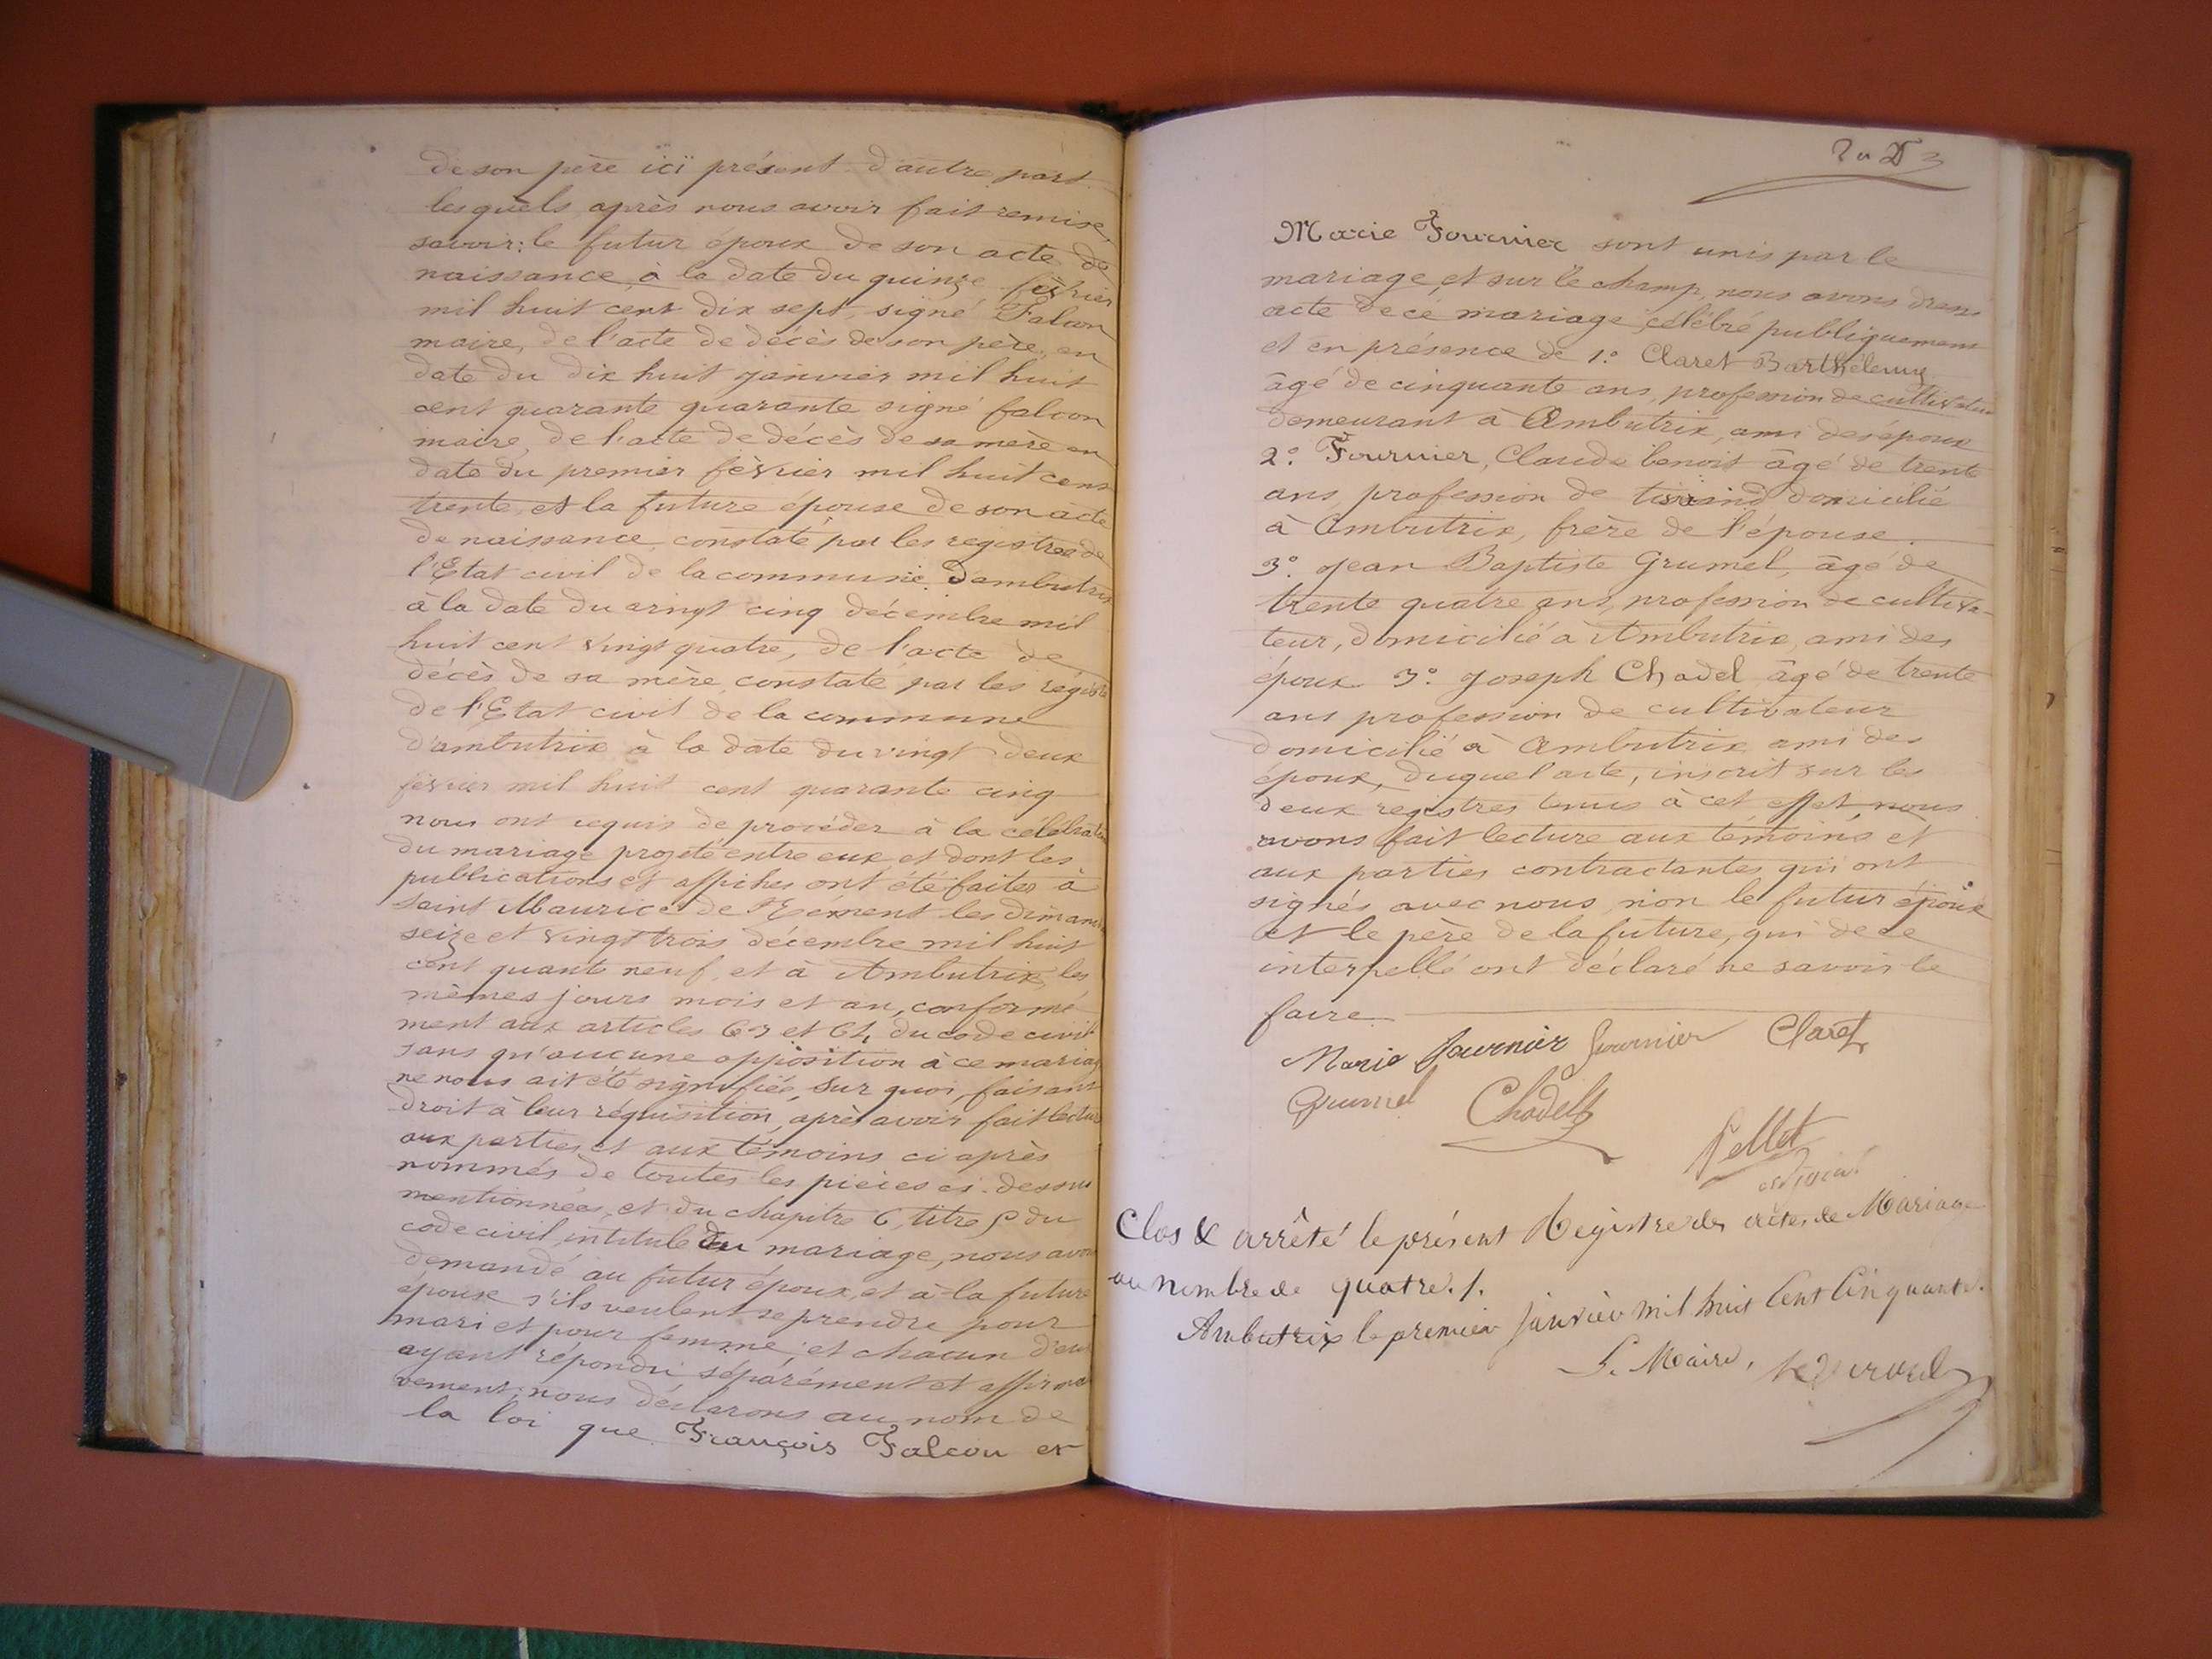 de son père ïcï présent d'autre part
lesquels, après nous avoir fait remise,
savoir: le futur époux de son acte de
naissance, à la date du quinze février
mil huit cent dix sept, signé Falcon
maire, de l'acte de décès de son père, en
date du dix huit janvier mil huit
cent quarante quarante signé falcon
maire, de l'acte de décès de sa mère en
date du premier février mil huit cent
trente, et la future épouse de son acte
de naissance, constaté par les registres de
l'Etat civil de la commune d'ambutrix
à la date du vingt cinq décembre mil
huit cent vingt quatre, de l'acte de
décès de sa mère, constaté par les régistr
de l'Etat civil de la commune
d'ambutrix à la date du vingt deux
février mil huit cent quarante cinq
nous ont requis de procéder à la célébration
du mariage projeté entre eux et dont les
publications et affiches ont été faites à
saint Maurice de Rément les dimanch
seize et vingt trois décembre mil huit
cent quante neuf, et à Ambutrix, les
mêmes jours mois et an, conformé
ment aux articles 63 et 64 du code civil
sans qu'aucune opposition à ce mariag
ne nous ait été signifiée, sur quoi, faisant
droit à leur réquisition, après avoir fait lecture
aux parties, et aux témoins ci après
nommés de toutes les pièces ci-dessus
mentionnées, et du chapitre 6, titre 5 du
code civil, intitulé du mariage, nous avons
demandé au futur époux, et à la future
épouse s'ils veulent se prendre pour
mari et pour femme, et chacun d'eux
ayant répondu séparément et affirma
vement; nous déclarons au nom de
la loi que François Falcon et
Marie Fournier sont unis par le
mariage, et sur le champ, nous avons dressé
acte de ce mariage célébré publiquement
et en présence de 1.° Claret Barthélemy
âgé de cinquante ans, profession de cultivateur
demeurant à Ambutrix, ami des époux
2.° Fournier, Claude benoit âgé de trente
ans, profession de tisserand domicilié
à Ambutrix, frère de l'épouse.
3.° Jean Baptiste Grumel, âgé de
trente quatre ans, profession de cultiva-
teur, domicilié à Ambutrix, ami des
époux 3.° Joseph Chadel âgé de trente
ans profession de cultivateur
domicilié à Ambutrix ami des
époux, duquel acte, inscrit sur les
deux registres tenus à cet effet nous
avons fait lecture aux témoins et
aux parties contractantes qui ont
signés avec nous, non le futur époux
et le père de la future, qui de ce
interpellé ont déclaré ne savoir le
faire
Marie fournier fournier Claret
Grumel Chadel
Pellet
Clos & arrêté le présent Régistre des actes de Mariage
au nombre de quatre./.
Ambutrix le premier janvier mil huit Cent Cinquante.
L. Maire,